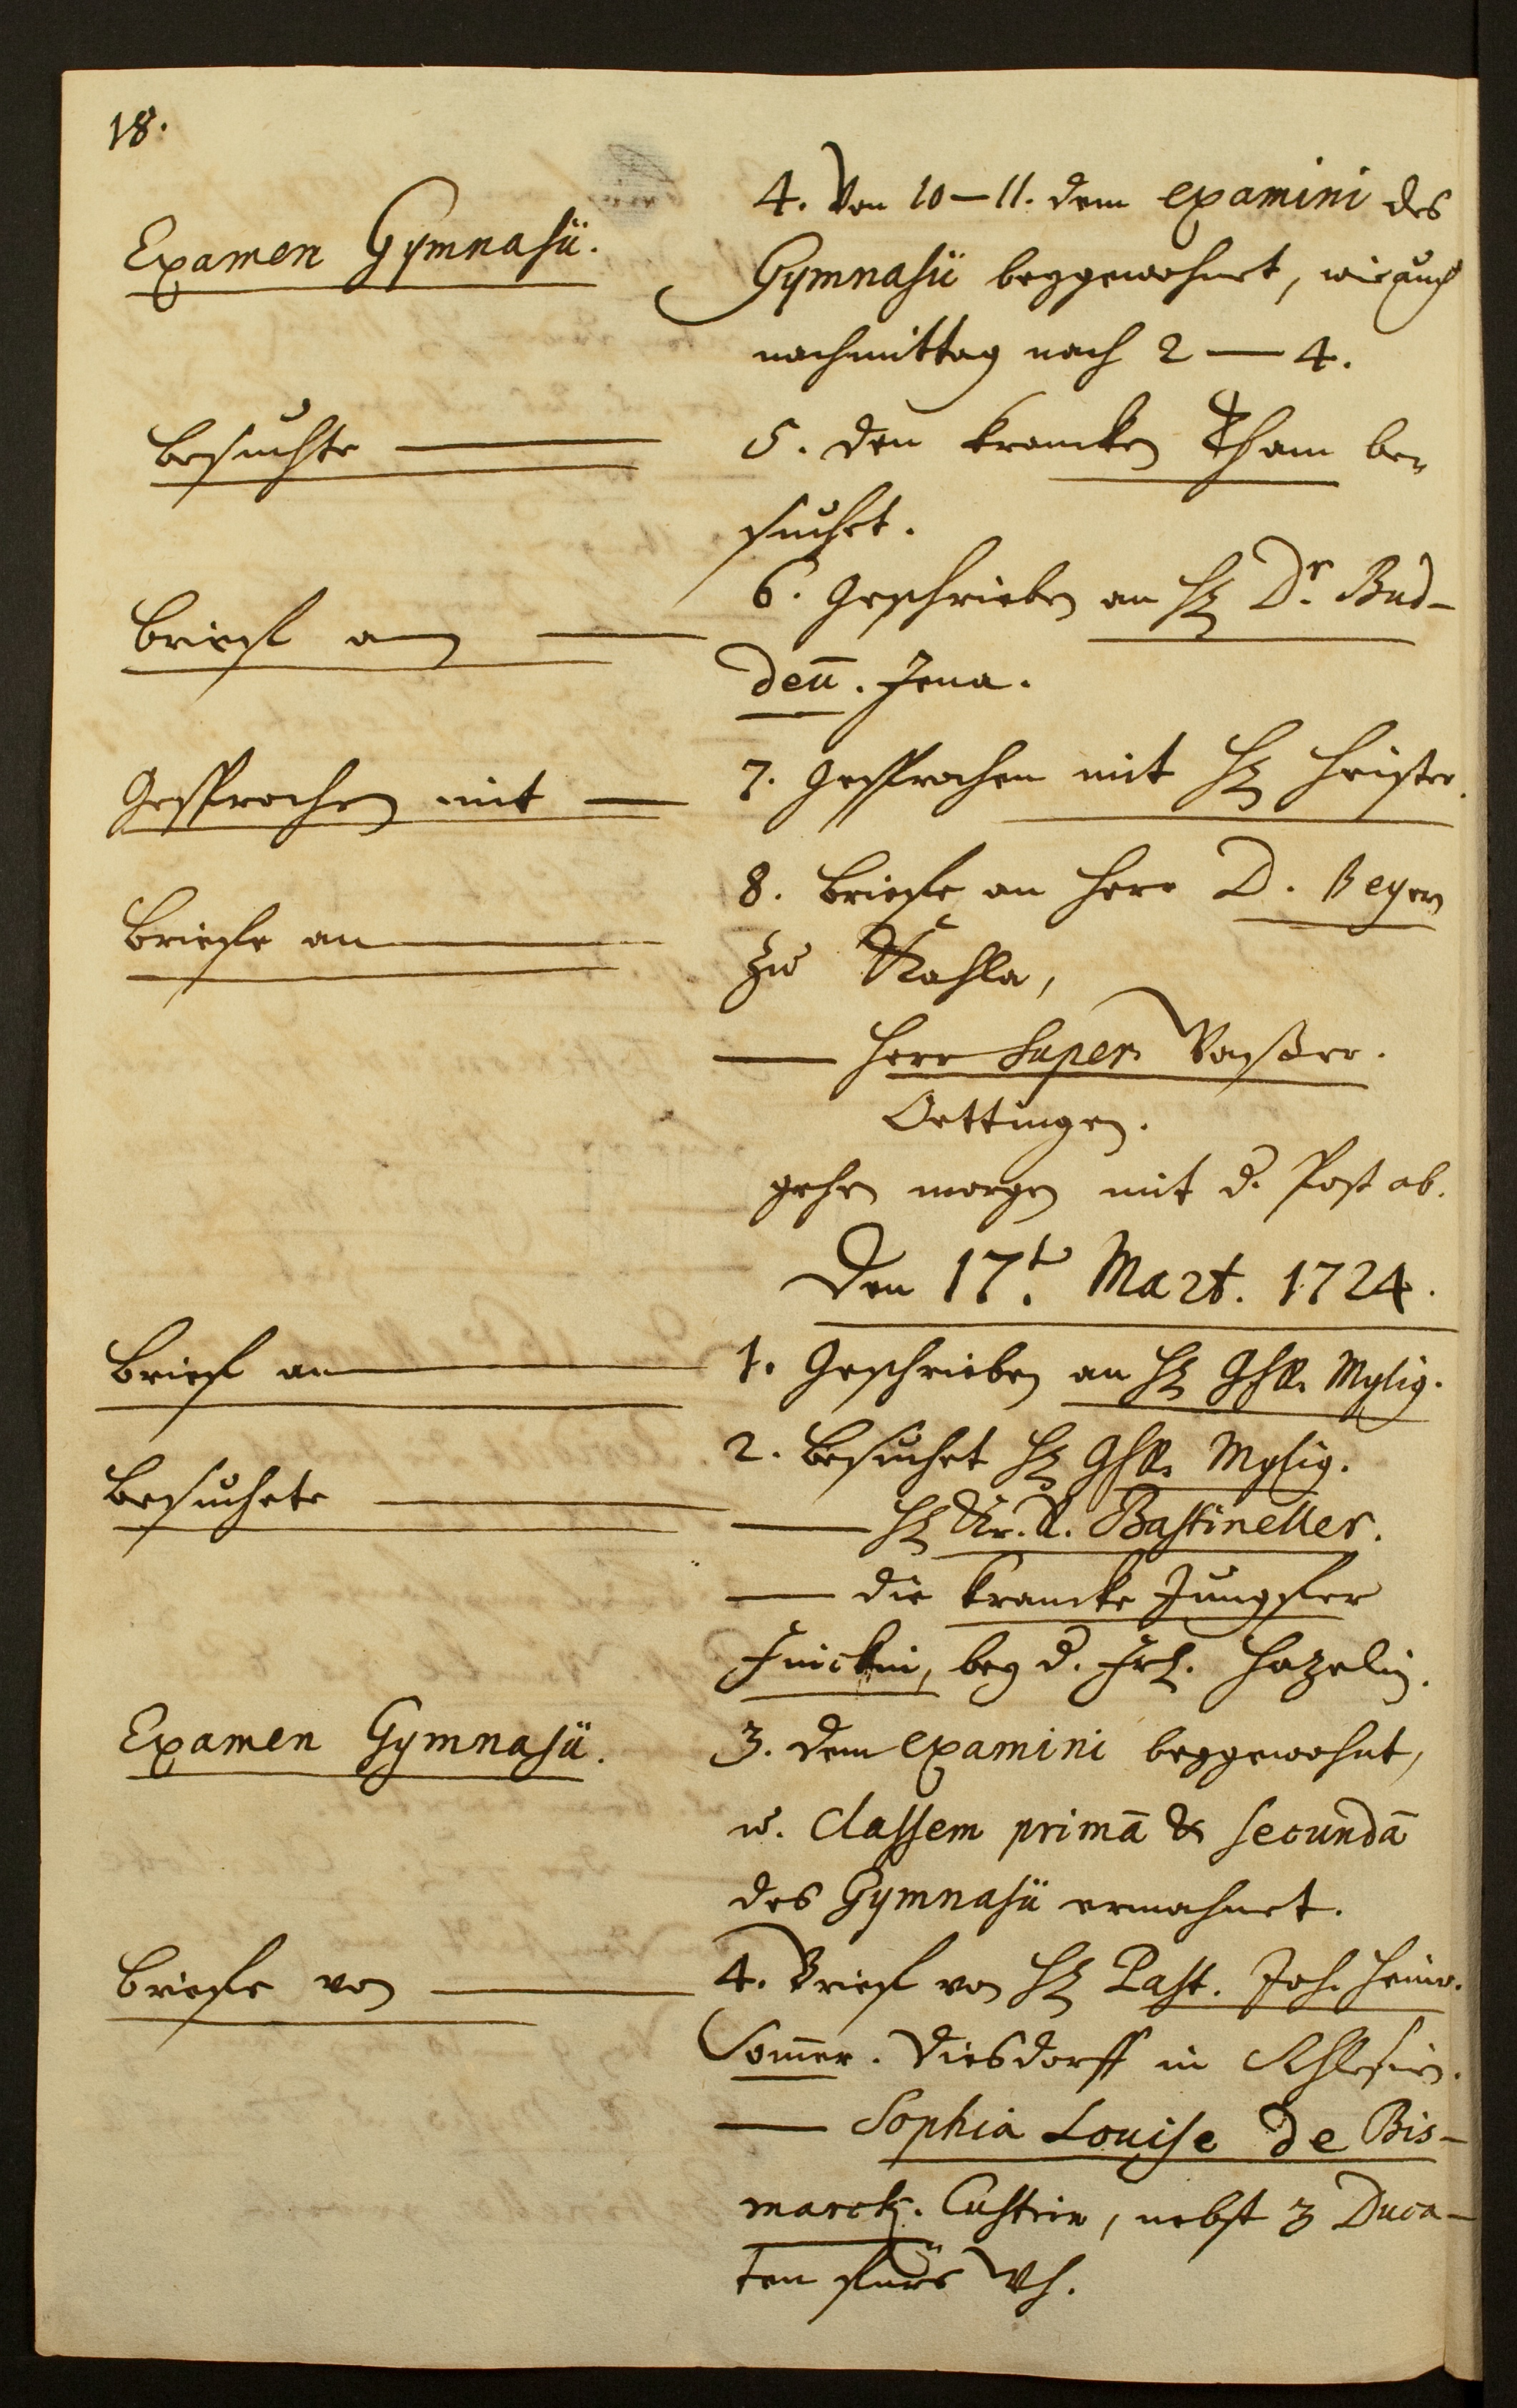 18.
4. Von 10—11. dem examini des
Examen Gymnasii.
Gymnasii beygewohnet, wie auch
nachmittag nach 2 — 4.
Besuchte —
5. den krancken Tham be-
suchet.
Brief an —
6. Geschrieben an H. Dr. Bud-
deū. Jena.
Gesprochen mit —
7. Gesprochen mit H. Heister.
Briefe an —
8. Briefe an Herr D. Beyer
zu Kahla,
— Herr Super.
Oettingen.
gehen morgen mit d. Post ab.
Den 17t. Mart. 1724.
Brief an —
1. Geschrieben an H. Mylig.
Besuchete —
2. Besuchet H. Mylig.
— H. Bastineller.
— die krancke Jungfer
bey d. Hazelin.
Examen Gymnasii.
3. dem examini beygewohnt,
u. Classem primā & secundā
des Gymnasii ermahnet.
Briefe von —
4. Brief von H. Past. Joh. Heinr.
Som̄er. Diesdorff in Schlesien.
— Sophia Louise de Bis-
marck. Custrin, nebst 3 Duca-
ten fürs Wh.